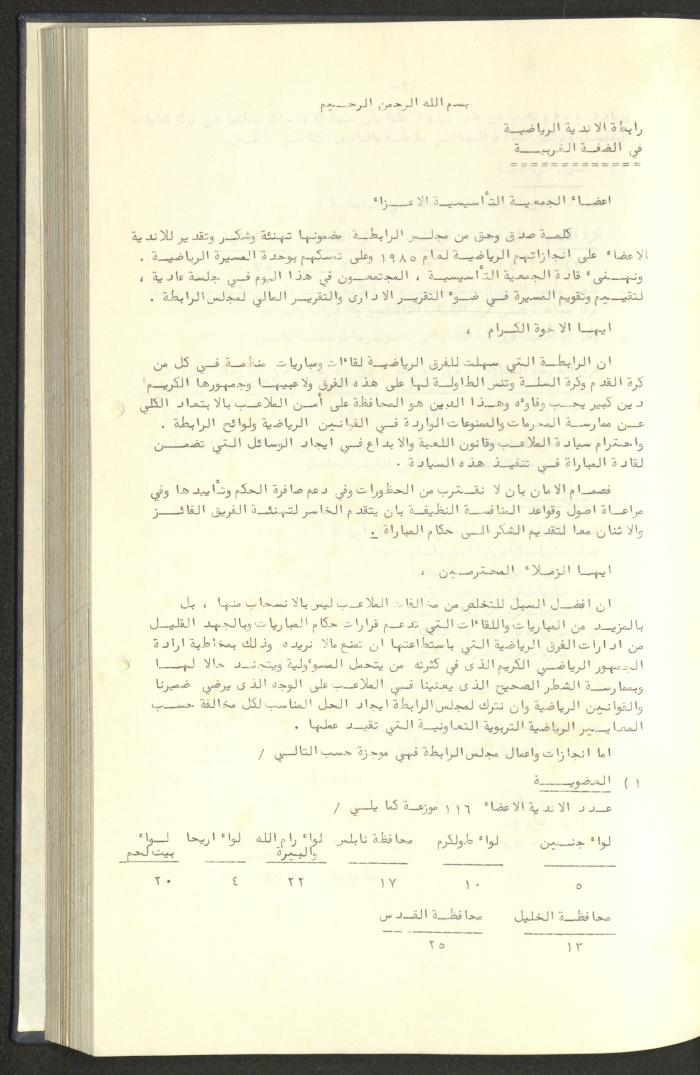 بسم الله الرحمن الرحيم
رابطة الاندية الرياضية
في الضفة الغربية
اعضاء الجمعية التأسيسية الاعزاء
كلمة صدق وحق من مجلس الرابطة مضمونها تهنئة وشكر وتقدير للاندية
الاعضاء على انجازاتهم الرياضية لعام ١٩٨٥ وعلى تمسكهم بوحدة المسيرة الرياضية .
ونهنىء قادة الجمعية التأسيسية ، المجتمعون في هذا اليوم في جلسة عادية ،
لتقييم وتقويم المسيرة في ضوء التقرير الادارى والتقرير المالي لمجلس الرابطة .
ايها الاخوة الكرام ،
ان الرابطة التي سهلت للفرق الرياضية لقاءات ومباريات منظمة في كل من
كرة القدم وكرة السلة وتنس الطاولة لها على هذه الفرق ولاعبيها وجمهورها الكريم
دين كبير يجب وفاوءه وهذا الدين هو المحافظة على أمن الملاعب بالابتعاد الكلي
عن ممارسة المحرمات والممنوعات الواردة في القوانين الرياضية ولوائح الرابطة .
واحترام سيادة الملاعب وقانون اللعبة والابداع في ايجاد الوسائل التي تضمن
لقادة المباراة في تنفيذ هذه السيادة .
فصمام الامان بان لا نقترب من الحظورات وفي دعم صافرة الحكم وتأييدها وفي
مراعاة اصول وقواعد المنافسة النظيفة بان يتقدم الخاسر لتهنئة الفريق الفائز
والاثنان معا لتقديم الشكر الى حكام المباراة .
ايها الزملاء المحترمين ،
ان افضل السبل للتخلص من مخالفات الملاعب ليس بالانسحاب منها ، بل
بالمزيد من المباريات واللقاءات التي تدعم قرارات حكام المباريات وبالجهد القليل
من ادارات الفرق الرياضية التي باستطاعتها ان تمنع مالا نريده وذلك بمخاطبة ارادة
الجمهور الرياضي الكريم الذى في كثرته من يتحمل المسوءولية ويتجند حالا لها
وبممارسة الشطر الصحيح الذى يعنينا في الملاعب على الوجه الذى يرضي ضميرنا
والقوانين الرياضية وان نترك لمجلس الرابطة ايجاد الحل المناسب لكل مخالفة حسب
المعايير الرياضية التربوية التعاونية التي تقيد عملها .
اما انجازات واعمال مجلس الرابطة فهي موجزة حسب التالي /
١ ) العضوية
عدد الاندية الاعضاء ١١٦ موزعة كما يلي /
لواء جنين لواء طولكرم محافظة نابلس لواء رام الله لواء اريحا لواء
والبيرة بيت لحم
٥ ١٠ ١٧ ٢٢ ٤ ٢٠
محافظة الخليل محافظة القدس
١٣ ٢٥